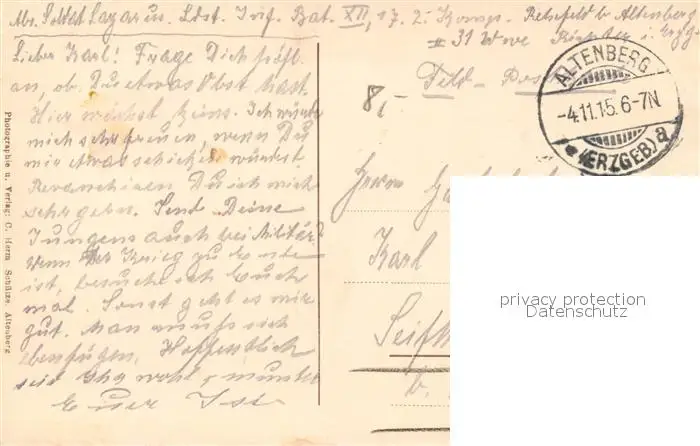 Abs. Soldat Lazarus. Ldst. Inf. Bat. XII, 17. 2. Komp. Rehefeld b. Altenberg
31 Wwe i. Erzg.
Lieber Karl! Frage Dich höfl.
an, ob Du etwas Obst hast.
Hier wächst keins. Ich würde
mich sehr freuen, wenn Du
mir etwas schicken würdest.
Revanchieren Du ich mich
sehr gern. Send Deine
Jungens auch bei Militär?
Wenn der Krieg zu Ende
ist, besuche ich Euch
mal. Sonst geht es mir
gut. Man muss sich
eben fügen. Hoffentlich
seid Ihr wohl u. munter
Euer
Feld-Post
8,-
ALTENBERG
-4.11.15. 6-7N
* (ERZGEB.) a
Herrn
Karl
Photographie u. Verlag: C. Herm. Schütze, Altenberg
privacy protection
Datenschutz